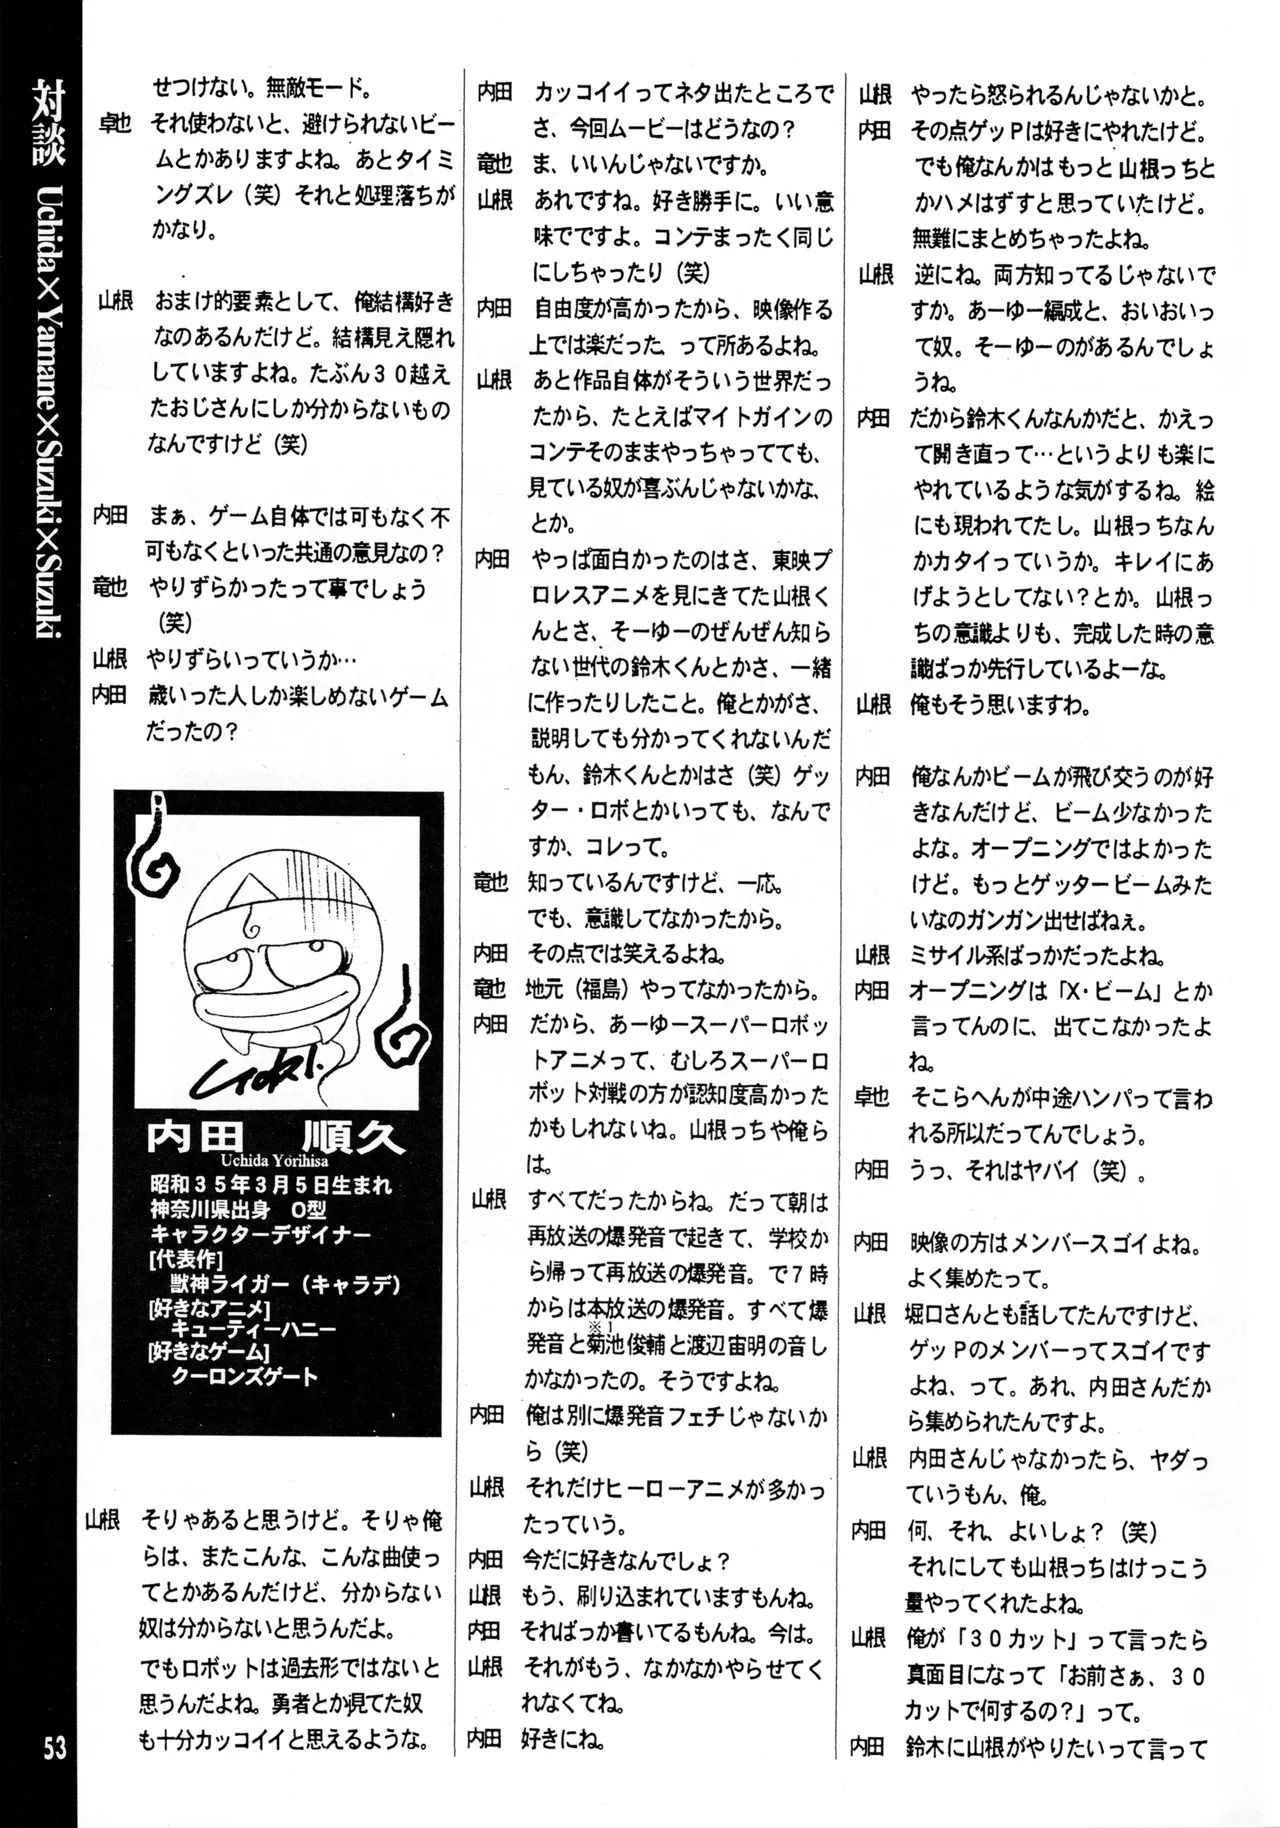 対談 Uchida×Yamane×Suzuki×Suzuki
せつけない。無敵モード。
卓也 それ使わないと、避けられないビー
ムとかありますよね。あとタイミ
ングズレ（笑）それと処理落ちが
かなり。
山根 おまけ的要素として、俺結構好き
なのあるんだけど。結構見え隠れ
していますよね。たぶん３０越え
たおじさんにしか分からないもの
なんですけど（笑）
内田 まぁ、ゲーム自体では可もなく不
可もなくといった共通の意見なの？
竜也 やりずらかったって事でしょう
（笑）
山根 やりずらいっていうか…
内田 歳いった人しか楽しめないゲーム
だったの？
内田 順久
Uchida Yorihisa
昭和３５年３月５日生まれ
神奈川県出身 O型
キャラクターデザイナー
[代表作]
獣神ライガー（キャラデ）
[好きなアニメ]
キューティーハニー
[好きなゲーム]
クーロンズゲート
山根 そりゃあると思うけど。そりゃ俺
らは、またこんな、こんな曲使っ
てとかあるんだけど、分からない
奴は分からないと思うんだよ。
でもロボットは過去形ではないと
思うんだよね。勇者とか見てた奴
も十分カッコイイと思えるような。
内田 カッコイイってネタ出たところで
さ、今回ムービーはどうなの？
竜也 ま、いいんじゃないですか。
山根 あれですね。好き勝手に。いい意
味でですよ。コンテまったく同じ
にしちゃったり（笑）
内田 自由度が高かったから、映像作る
上では楽だった、って所あるよね。
山根 あと作品自体がそういう世界だっ
たから、たとえばマイトガインの
コンテそのままやっちゃってても、
見ている奴が喜ぶんじゃないかな、
とか。
内田 やっぱ面白かったのはさ、東映プ
ロレスアニメを見にきてた山根く
んとさ、そーゆーのぜんぜん知ら
ない世代の鈴木くんとかさ、一緒
に作ったりしたこと。俺とかがさ、
説明しても分かってくれないんだ
もん、鈴木くんとかはさ（笑）ゲッ
ター・ロボとかいっても、なんで
すか、コレって。
竜也 知っているんですけど、一応。
でも、意識してなかったから。
内田 その点では笑えるよね。
竜也 地元（福島）やってなかったから。
内田 だから、あーゆースーパーロボッ
トアニメって、むしろスーパーロ
ボット対戦の方が認知度高かった
かもしれないね。山根っちや俺ら
は。
山根 すべてだったからね。だって朝は
再放送の爆発音で起きて、学校か
ら帰って再放送の爆発音。で７時
からは本放送の爆発音。すべて爆
※１
発音と菊池俊輔と渡辺宙明の音し
かなかったの。そうですよね。
内田 俺は別に爆発音フェチじゃないか
ら（笑）
山根 それだけヒーローアニメが多かっ
たっていう。
内田 今だに好きなんでしょ？
山根 もう、刷り込まれていますもんね。
内田 そればっか書いてるもんね。今は。
山根 それがもう、なかなかやらせてく
れなくてね。
内田 好きにね。
山根 やったら怒られるんじゃないかと。
内田 その点ゲッＰは好きにやれたけど。
でも俺なんかはもっと山根っちと
かハメはずすと思っていたけど。
無難にまとめちゃったよね。
山根 逆にね。両方知ってるじゃないで
すか。あーゆー編成と、おいおいっ
て奴。そーゆーのがあるんでしょ
うね。
内田 だから鈴木くんなんかだと、かえっ
て開き直って…というよりも楽に
やれているような気がするね。絵
にも現われてたし。山根っちなん
かカタイっていうか。キレイにあ
げようとしてない？とか。山根っ
ちの意識よりも、完成した時の意
識ばっか先行しているよーな。
山根 俺もそう思いますわ。
内田 俺なんかビームが飛び交うのが好
きなんだけど、ビーム少なかった
よな。オープニングではよかった
けど。もっとゲッタービームみた
いなのガンガン出せばねぇ。
山根 ミサイル系ばっかだったよね。
内田 オープニングは「X・ビーム」とか
言ってんのに、出てこなかったよ
ね。
卓也 そこらへんが中途ハンパって言わ
れる所以だってんでしょう。
内田 うっ、それはヤバイ（笑）。
内田 映像の方はメンバースゴイよね。
よく集めたって。
山根 堀口さんとも話してたんですけど、
ゲッＰのメンバーってスゴイです
よね、って。あれ、内田さんだか
ら集められたんですよ。
山根 内田さんじゃなかったら、ヤダっ
ていうもん、俺。
内田 何、それ、よいしょ？（笑）
それにしても山根っちはけっこう
量やってくれたよね。
山根 俺が「３０カット」って言ったら
真面目になって「お前さぁ、３０
カットで何するの？」って。
内田 鈴木に山根がやりたいって言って
53